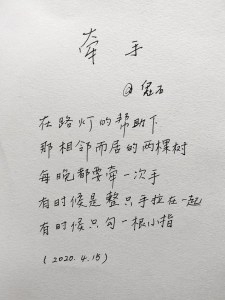 牵手
@冠石
在路灯的帮助下
那相邻而居的两棵树
每晚都要牵一次手
有时候是整只手拉在一起
有时候只勾一根小指
(2020.4.15)